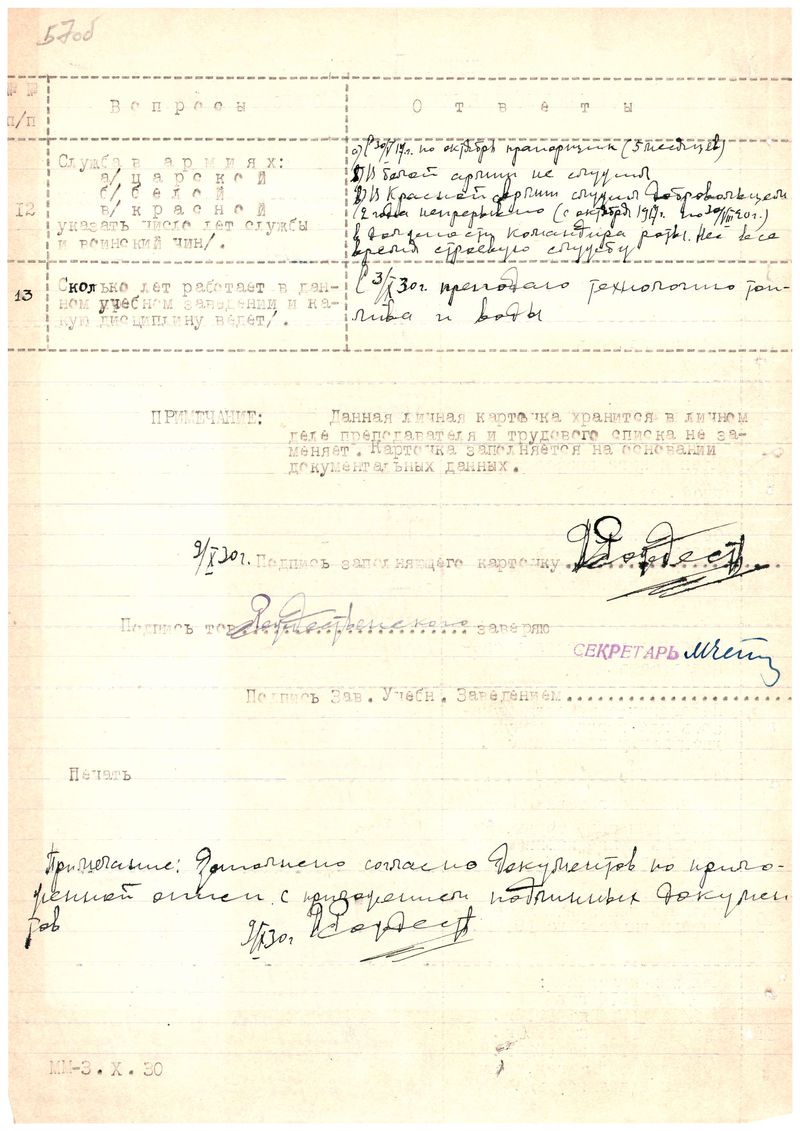 57об
№ №
п/п
Вопросы
Ответы
12
Служба в армиях:
а/ царской
б/ белой
в/ красной
указать число лет службы
и воинский чин/.
а) С 30/V 17г. по октябрь прапорщик (5 месяцев)
б) В белой армии не служил
в) В Красной армии служил добровольцем
(2 года непрерывно (с октября 1917г. по 30/VIII 20г.)
в должности командира роты. Нес все
время строевую службу
13
Сколько лет работает в дан-
ном учебном заведении и ка-
кую дисциплину ведет/.
С 3/X 30г. преподаю технологию топ-
лива и воды
ПРИМЕЧАНИЕ: Данная личная карточка хранится в личном
деле преподавателя и трудового списка не за-
меняет. Карточка заполняется на основании
документальных данных.
9/X 30г. Подпись заполняющего карточку
Подпись тов. Рождественского заверяю
СЕКРЕТАРЬ
Подпись Зав. Учебн. Заведением
Печать
Примечание: Заполнено согласно документов по прило-
женной описи с приложением подлинных докумен
тов
9/X 30г Рождеств
ММ-3.X.30